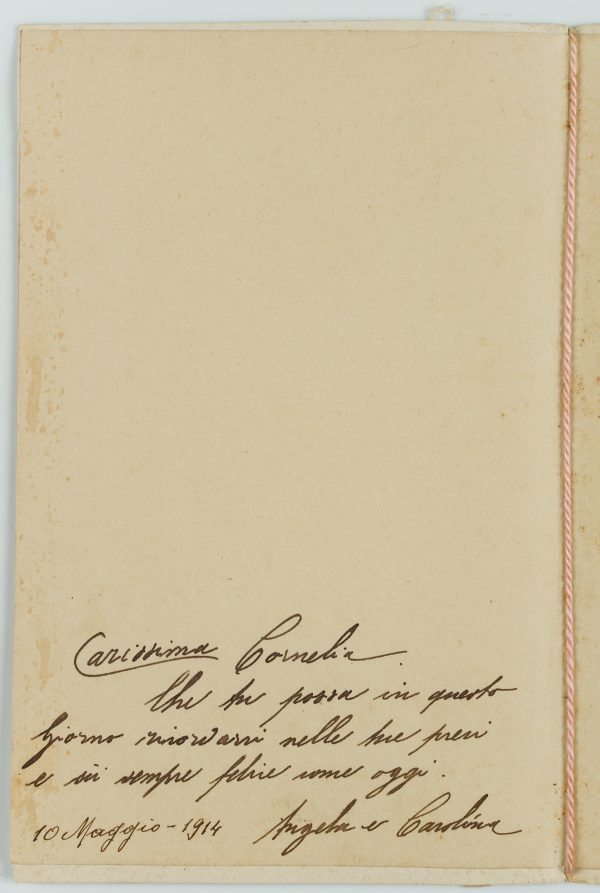 Carissima Cornelia.
Che tu possa in questo
Giorno ricordarci nelle tue preci
e sii sempre felice come oggi.
10 Maggio-1914 Angela e Carolina